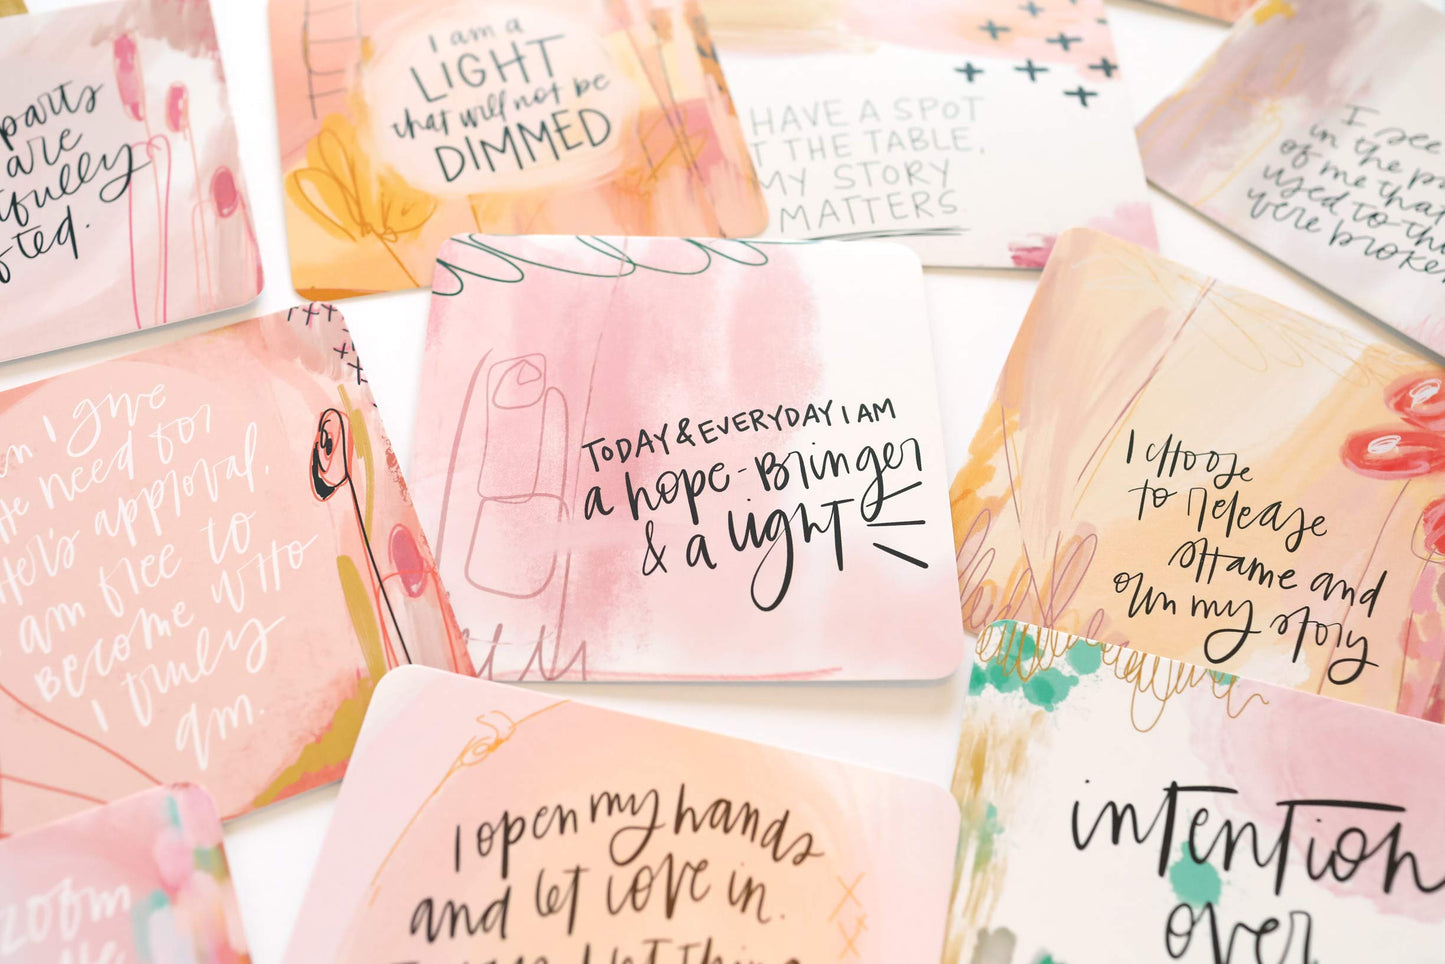 parts
are
fted.
I am a
LIGHT
that will not be
DIMMED
HAVE A SPOT
THE TABLE,
MY STORY
MATTERS.
I see
in the
of me that
used to
were broken
I give
need for
approval.
am free to
become who
I truly
am.
TODAY & EVERYDAY I AM
a hope-bringer
& a light
I choose
to release
shame and
own my story
I open my hands
and let love in.
intention
over
zoom